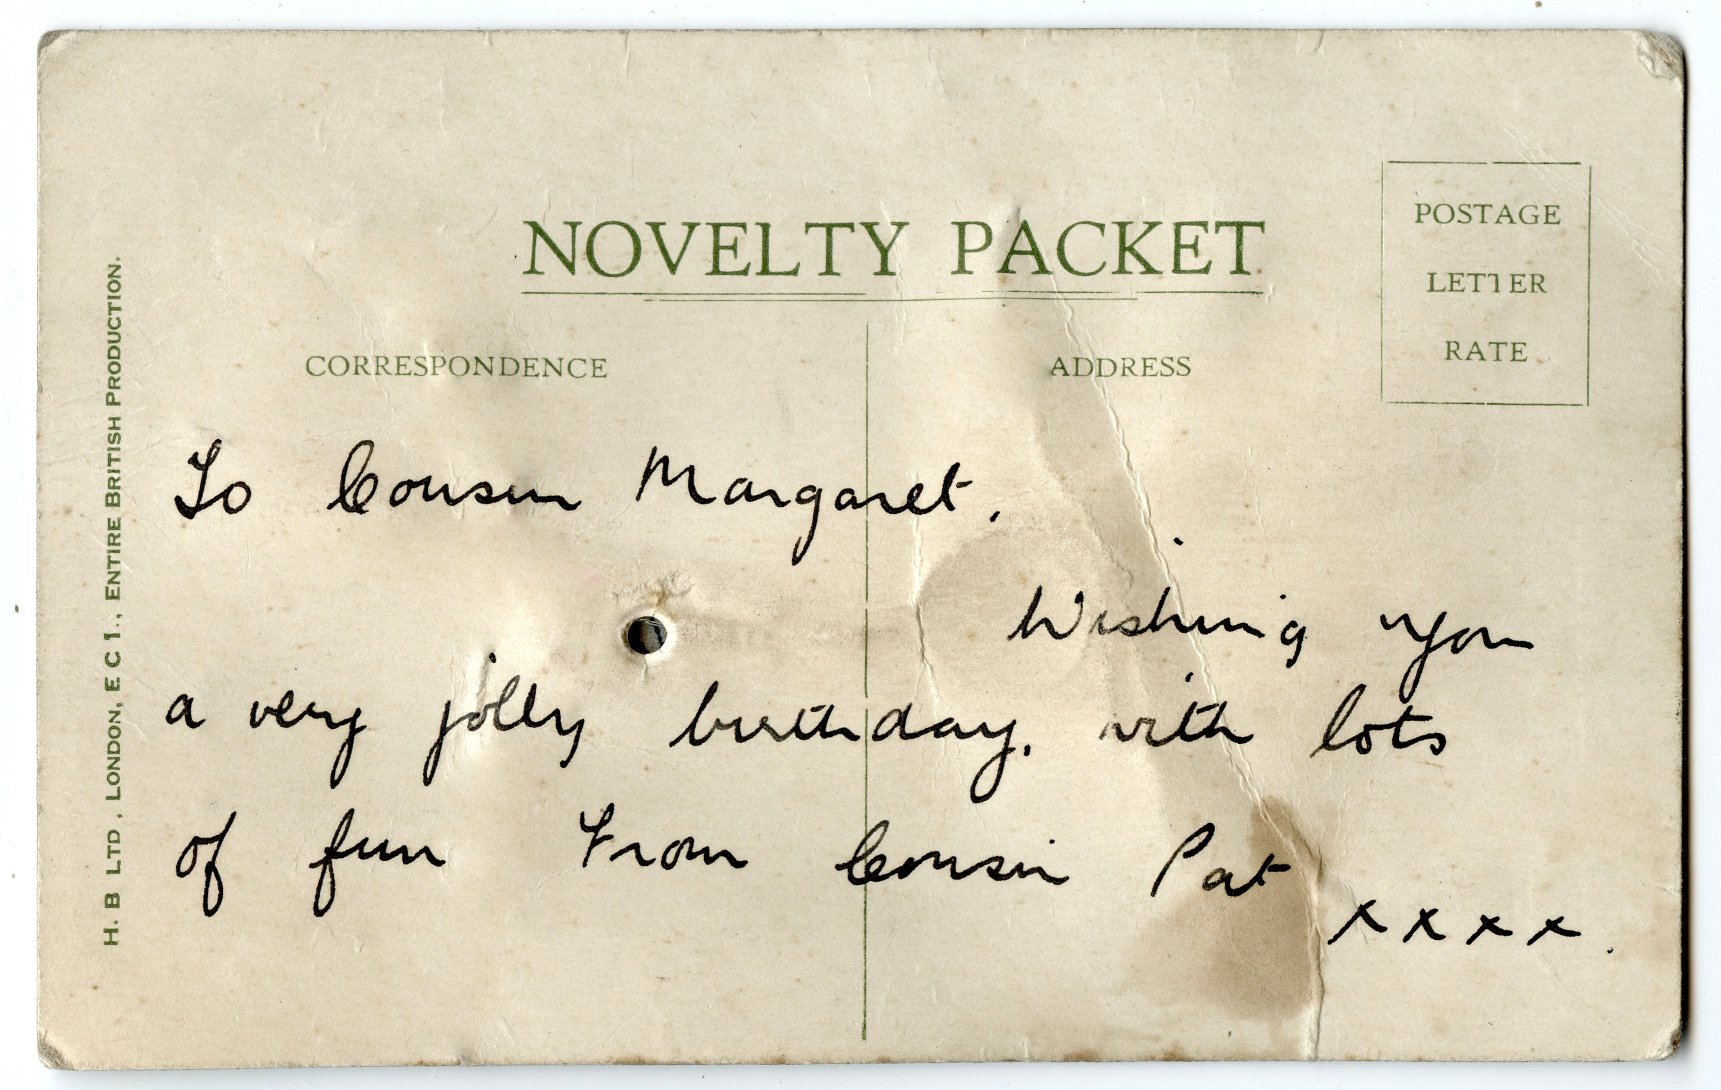 NOVELTY PACKET
POSTAGE
LETTER
RATE
CORRESPONDENCE
ADDRESS
To Cousin Margaret,
Wishing you
a very jolly birthday, with lots
of fun From Cousin Pat
x x x x .
H. B LTD, LONDON, E C 1., ENTIRE BRITISH PRODUCTION.